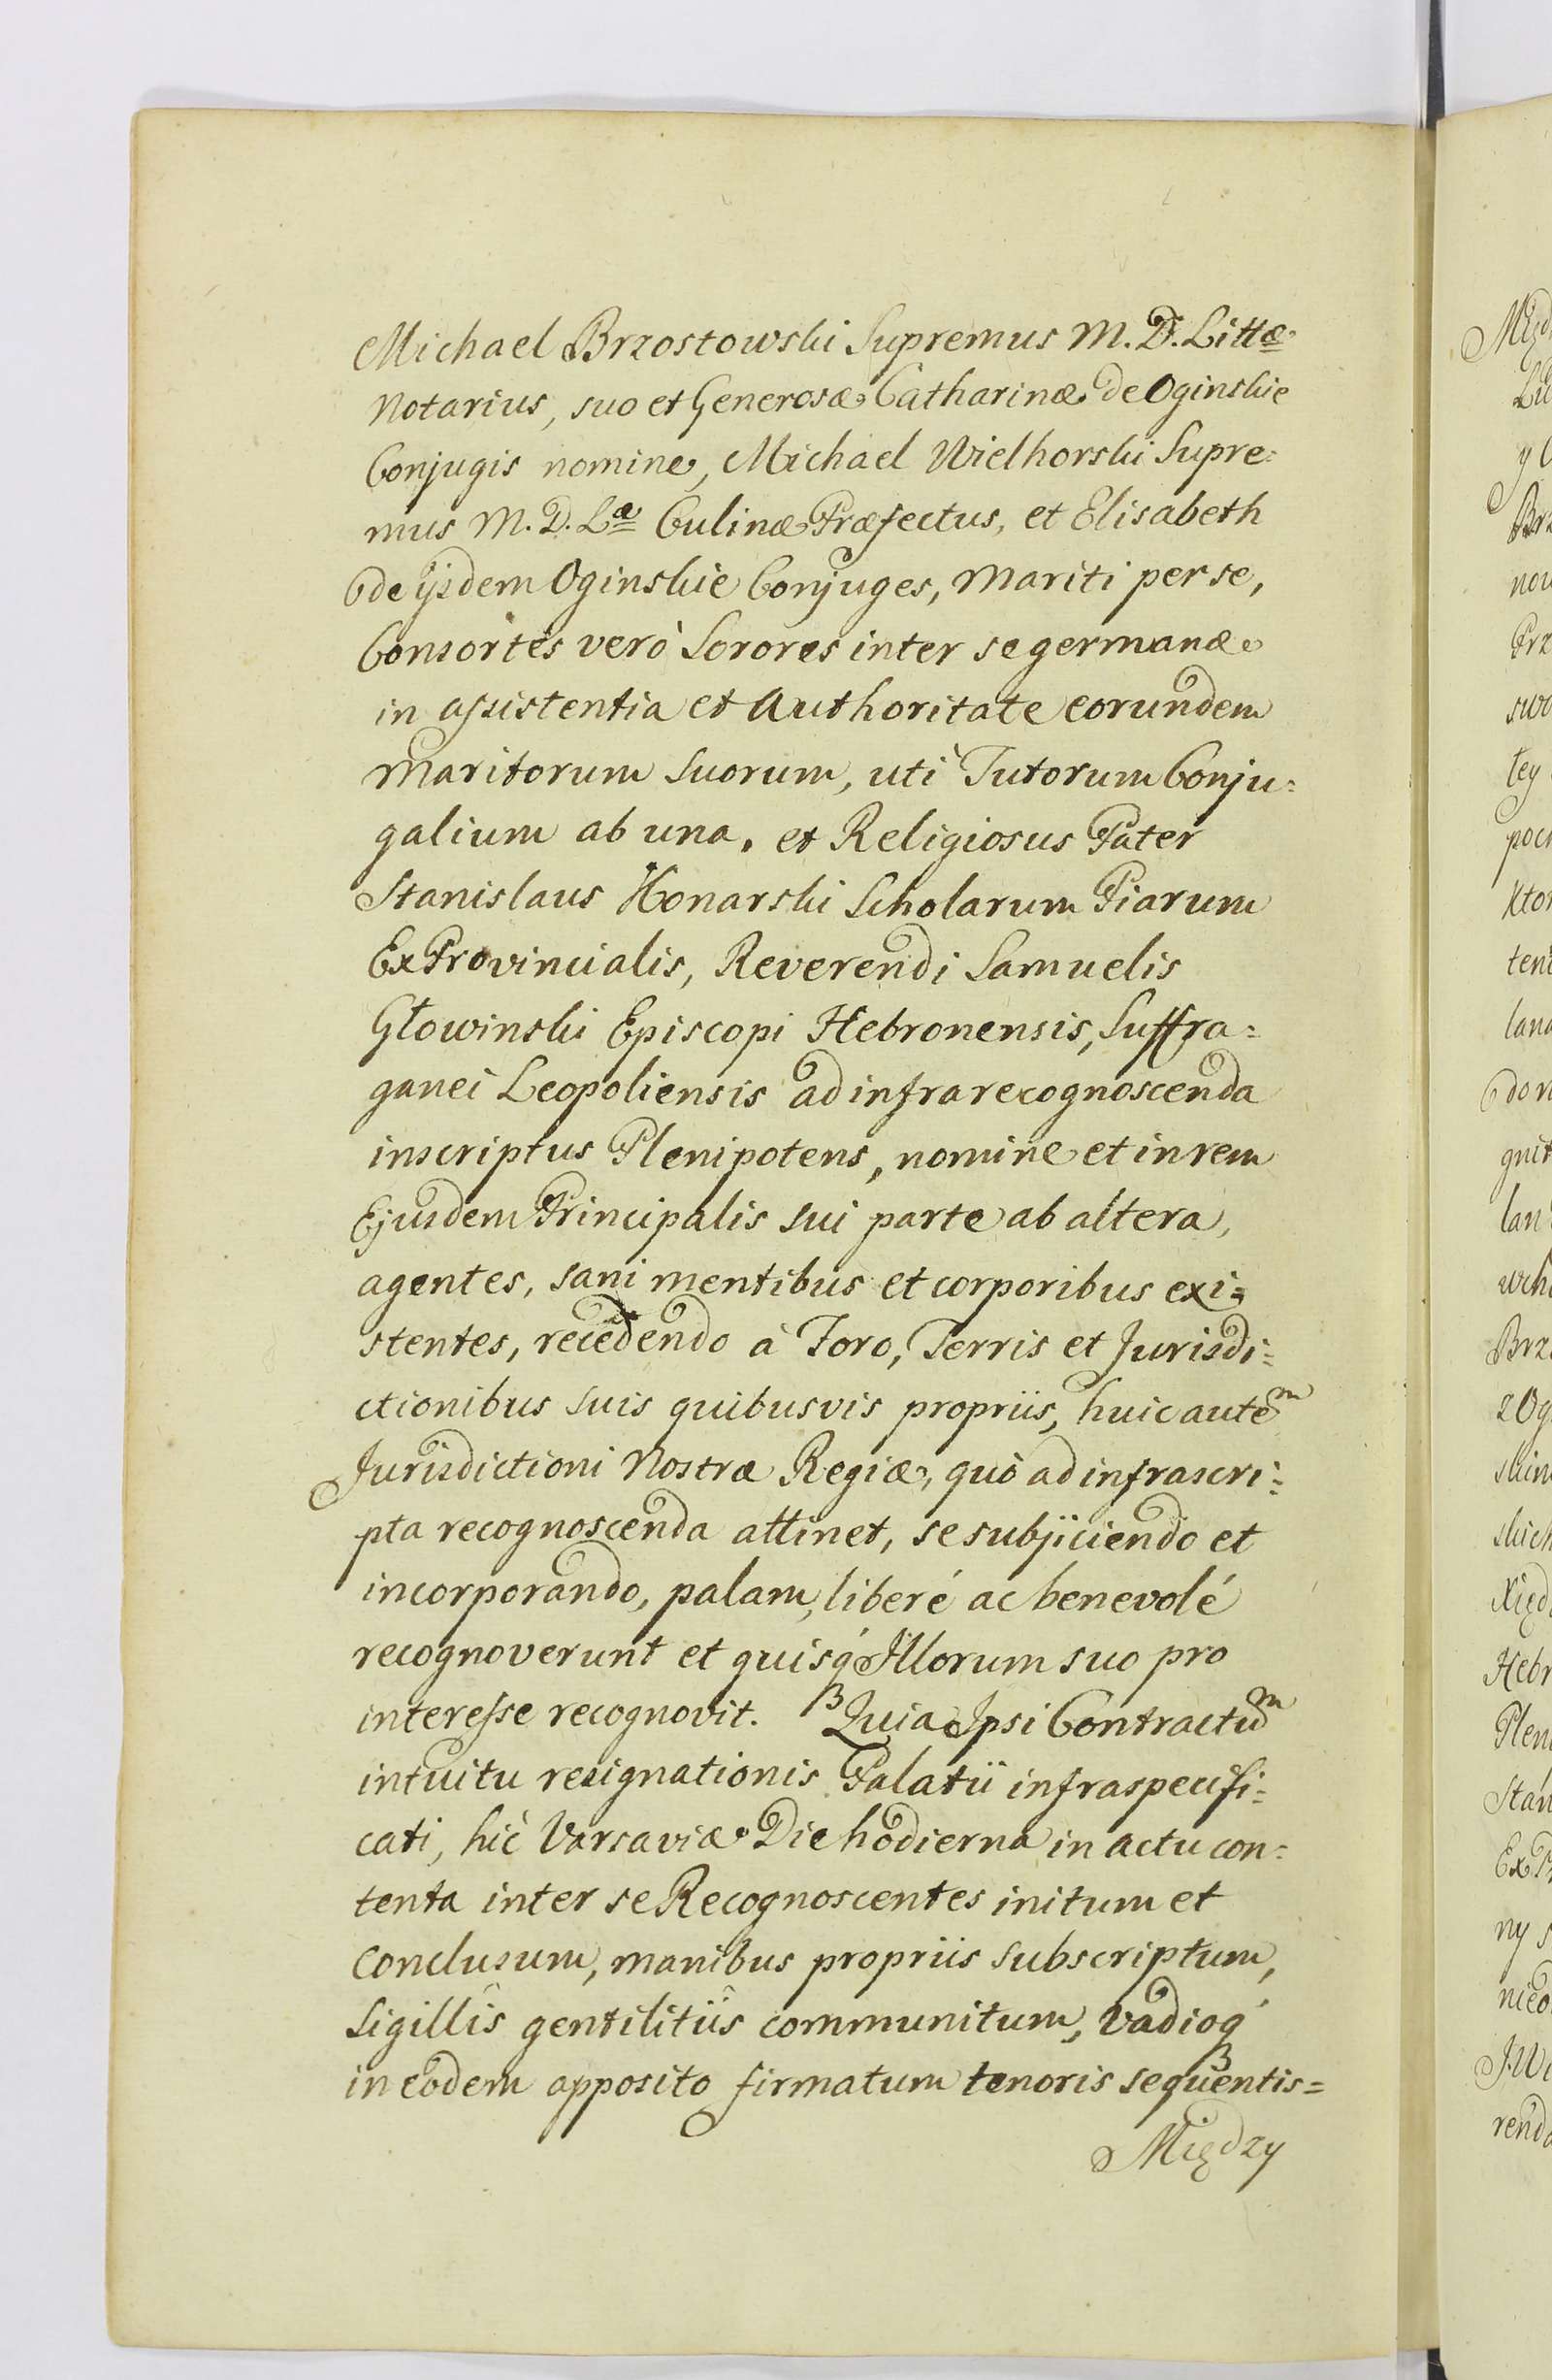 Michael Brzostowski Supremus M. D. Littæ
Notarius, suo et Generosæ Catharinæ de Oginskie
Conjugis nomine, Michael Wielhorski Supre=
mus M. D. Læ Culinæ Præfectus, et Elisabeth
de ijsdem Oginskie Conjuges, Mariti per se,
Consortes verò Sorores inter se germanæ
in assistentia et Authoritate eorundem
Maritorum Suorum, uti Tutorum Conju=
galium ab una, et Religiosus Pater
Stanislaus Konarski Scholarum Piarum
Ex Provincialis, Reverendi Samuelis
Głowinski Episcopi Hebronensis, Suffra=
ganei Leopoliensis ad infra recognoscenda
inscriptus Plenipotens, nomine et in rem
Ejusdem Principalis sui parte ab altera,
agentes, sani mentibus et corporibus exi=
stentes, recedendo à Foro, Terris et Jurisdi=
ctionibus suis quibusvis propriis, huic autem
Jurisdictioni Nostræ Regiæ, quò ad infrascri=
pta recognoscenda attinet, se subjiciendo et
incorporando, palam, liberé ac benevolé
recognoverunt et quisq́ Illorum suo pro
interesse recognovit. Quia Ipsi Contractum
intuitu resignationis Palatii infraspecifi=
cati, hìc Varsaviæ Die hodierna in actu con=
tenta inter se Recognoscentes initum et
conclusum, manibus propriis subscriptum,
Sigillîs gentilitiîs communitum, Vadioq́
in eodem apposito firmatum tenoris sequentis=
Między
Międ
Lit
y
Brz
now
Prz
swo
tey
poc
Kto
ten
lana
don
gnit
lan
wh
Brz
z Og
skin
skich
Xięd
Hebr
Plen
Stan
Ex P
ny s
nico
JW
rend